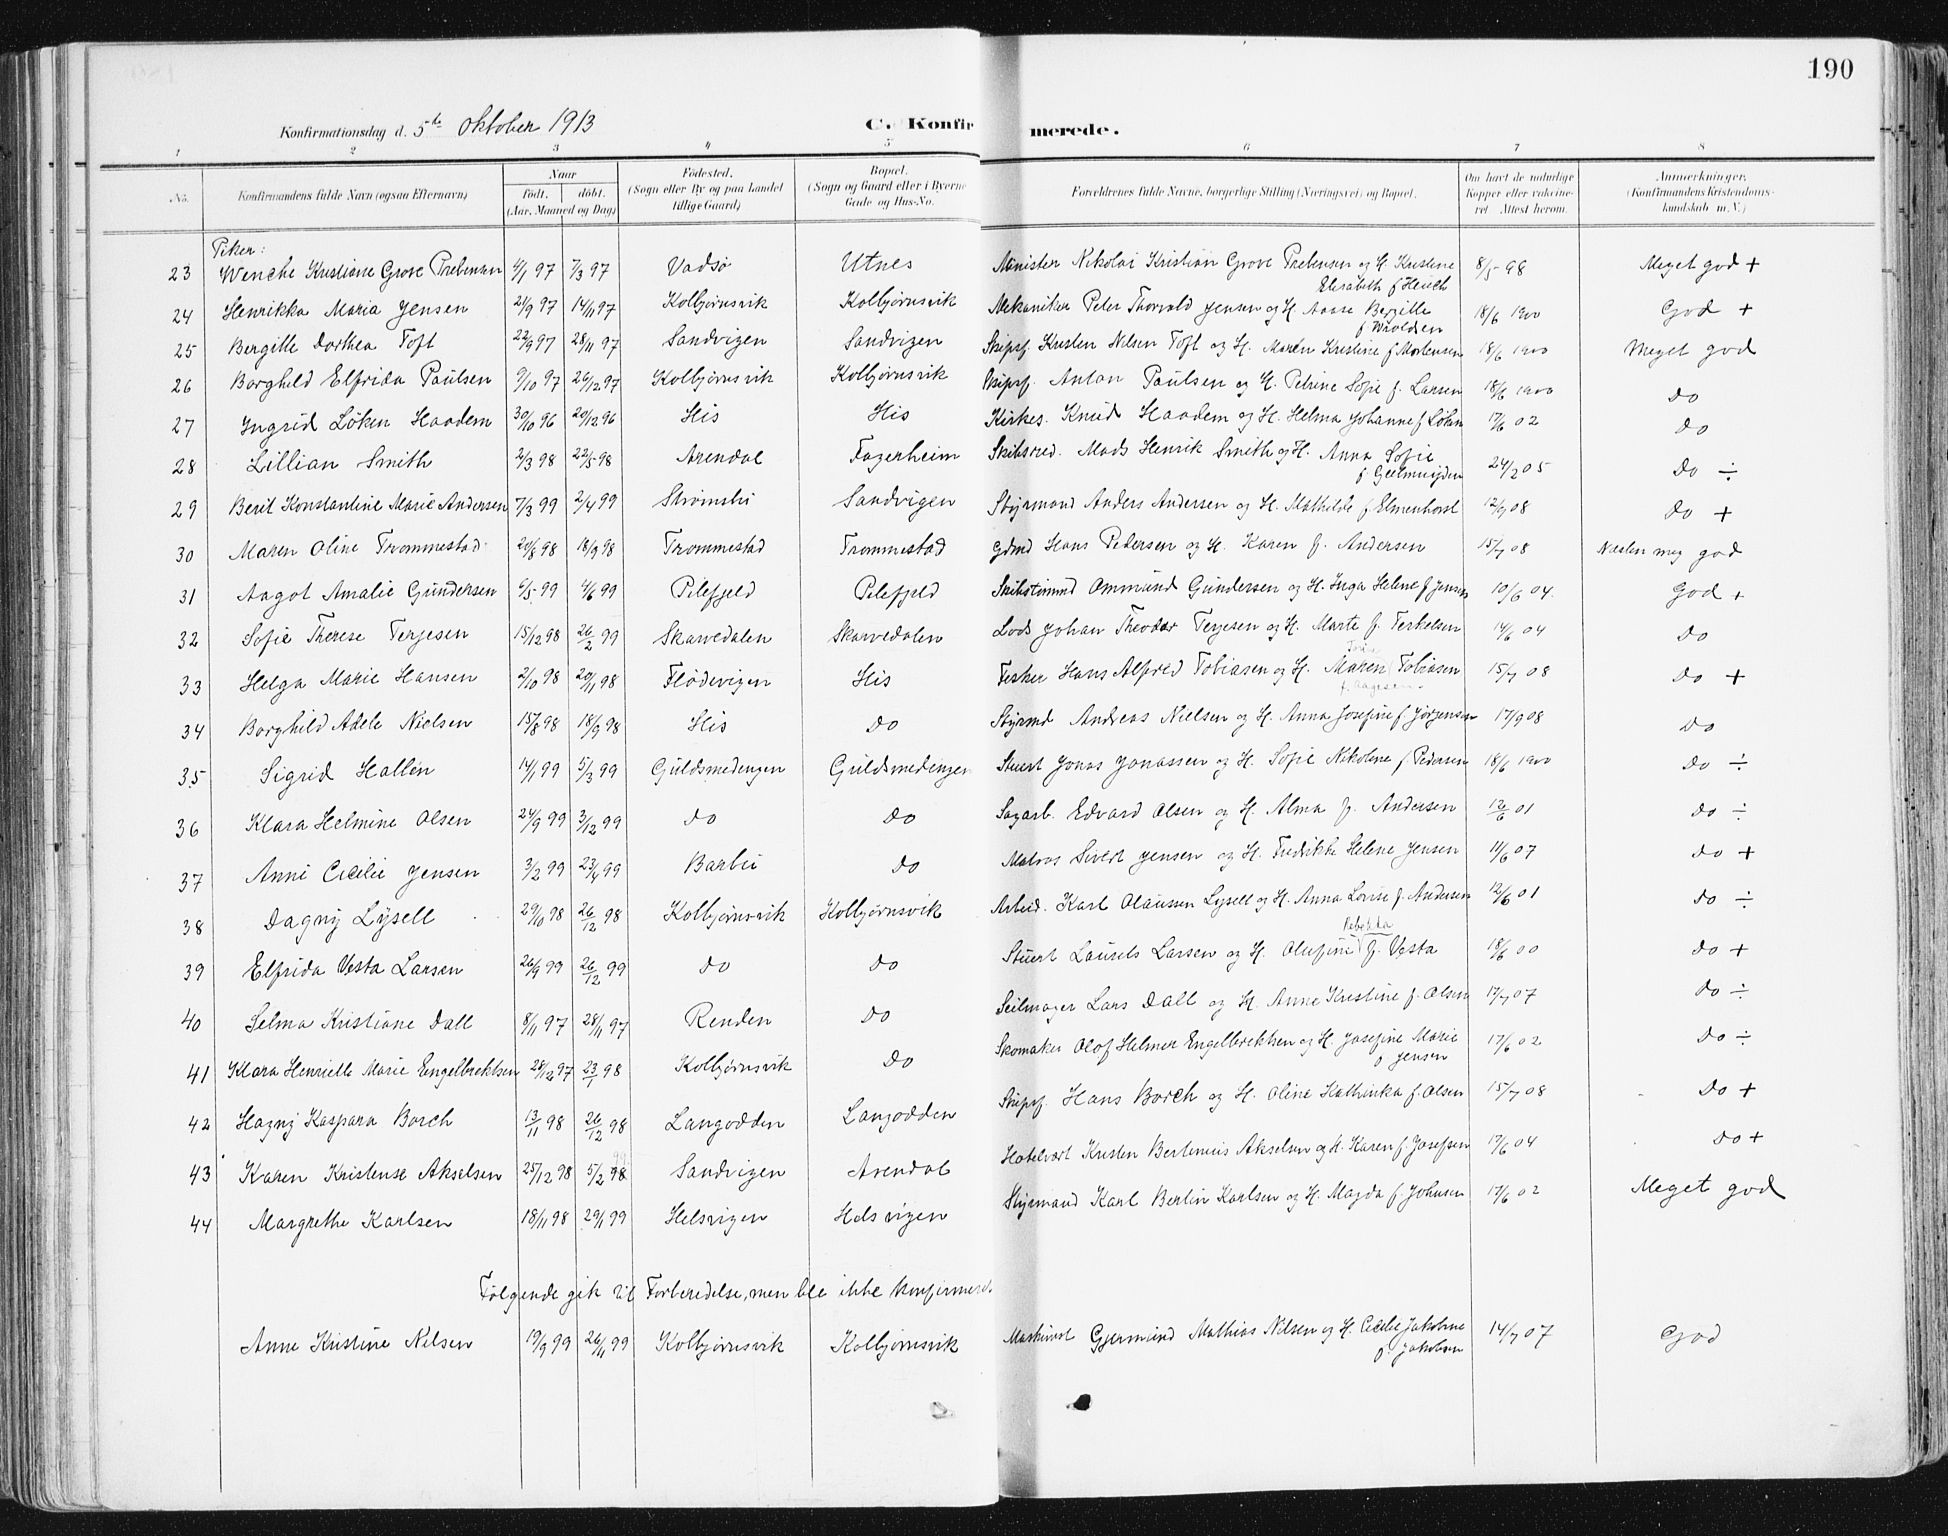 190
Konfirmationsdag d. 5te Oktober 1913 C. Konfirmerede.
1 2 3 4 5 6 7 8
No. Konfirmandens fulde Navn (ogsaa Efternavn) Naar født. døbt. (Aar, Maaned og Dag) Fødested. (Sogn eller By og paa Landet tillige Gaard) Bopæl. (Sogn og Gaard eller i Byerne Gade og Hus-No. Forældrenes fulde Navne, borgerlige Stilling (Næringsvei) og Bopæl. Om havt de naturlige Kopper eller vaccineret. Attest herom. Anmerkninger. (Konfirmandens Kristendomskundskab m. V.)
Piker:
23 Wenche Kristiane Grove Prebensen 4/1 97 7/3 97 Vadsø Utnes Minister Nikolai Kristian Grove Prebensen og H. Kristine Elisabeth f Heuch 8/5 98 Meget god +
24 Henrikka Maria Jensen 21/9 97 14/11 97 Kolbjørnsvik Kolbjørnsvik Mekaniker Peter Thorvald Jensen og H. Aase Bergitte 18/6 1900 God +
25 Bergitte Dorthea Toft 22/9 97 28/11 97 Sandvigen Sandvigen Skipsf. Kristen Nilsen Toft og H. Maren Kristine f Mortensen 18/6 1900 Meget god
26 Borghild Elfrida Paulsen 9/10 97 26/12 97 Kolbjørnsvik Kolbjørnsvik Skipsf. Anton Paulsen og H. Petrine Sofie f. Larsen 18/6 1900 do
27 Ingrid Løken Haadem 30/10 96 20/12 96 His His Kirkes. Knud Haadem og H. Helma Johanne f Løken 17/6 02 do
28 Lillian Smith 2/3 98 22/5 98 Arendal Fagerheim Skibsred. Mads Henrik Smith og H. Anna Sofie f Geelmuyden 24/2 05 do ÷
29 Berit Konstantine Marie Andersen 7/3 99 2/4 99 Strømsbu Sandvigen Styrmand Anders Andersen og H. Mathilde f Elmenhorst 12/9 08 do +
30 Maren Oline Trommestad 20/8 98 18/9 98 Trommestad Trommestad Gdmd Hans Pedersen og H. Karen f. Andersen 15/7 08 Næsten meg god
31 Aagot Amalie Gundersen 6/5 99 4/6 99 Pilefjeld Pilefjeld Skibstømmd Ommund Gundersen og H. Inga Helene f Jensen 10/6 04. God +
32 Sofie Therese Terjesen 15/12 98 26/2 99 Skarvedalen Skarvedalen Lods Johan Theodor Terjesen og H. Marte f. Terkelsen 14/6 04 do
33 Helga Marie Hansen 2/10 98 20/11 98 Flødevigen His Fisker Hans Alfred Tobiasen og H. Maren Tobiasen f. Aagesen 15/7 08 do +
34 Borghild Adele Nielsen 15/8 98 18/9 98 His do Styrmd Andreas Nielsen og H. Anna Josefine f Jørgensen 17/9 08 do
35 Sigrid Hallèn 14/1 99 5/3 99 Guldsmedengen Guldsmedengen Stuert Jonas Jonassen og H. Sofie Nikoline f. Pedersen 18/6 1900 do ÷
36 Klara Helmine Olsen 24/9 99 3/12 99 do do Sagarb. Edvard Olsen og H. Alma f. Andersen 12/6 01 do ÷
37 Anni Cicilie Jensen 3/2 99 23/4 99 Barbu do Matros Sivert Jensen og H. Fredrikke Helene Jensen 11/6 07 do +
38 Dagny Lysell 29/10 98 26/12 98 Kolbjørnsvik Kolbjørnsvik Arbeid. Karl Olaussen Lysell og H. Anna Lovise f. Andersen 12/6 01 do ÷
39 Elfrida Vesta Larsen 26/9 99 26/12 99 do do Stuert Laurets Larsen og H. Olufine Rebekka f. Vesta 18/6 00 do +
40 Selma Kristiane Dall 8/11 97 28/11 97 Renden do Seilmager Lars Dall og H. Anne Kristine f. Olsen 17/7 07 do ÷
41 Klara Henriette Marie Engelbrektsen 28/12 97 23/1 98 Kolbjørnsvik do Skomaker Olof Helmer Engelbrektsen og H. Josefine Marie f Jensen 17/6 02 do ÷
42 Hagny Kaspara Borch 13/11 98 26/12 98 Langodden Langodden Skipsf. Hans Borch og H. Oline Kathinka f. Olsen 15/7 08 do +
43 Karen Kristense Akselsen 25/12 98 5/2 98 Sandvigen Arendal Hotelvært Kristen Bertinius Akselsen og H. Karen f. Josefsen 17/6 04 do +
44 Margrethe Karlsen 18/11 98 29/1 99 Helsvigen Helsvigen Styrmand Karl Bertin Karlsen og H. Magda f. Johnsen 17/6 02 Meget god
Følgende gik til Forberedelse, men ble ikke konfirmeret.
Anne Kristine Nilsen 19/9 99 26/11 99 Kolbjørnsvik Kolbjørnsvik Maskinist Gjermund Mathias Nilsen og H. Cecilie Jakobine f. Jakobsen 14/7 07 God